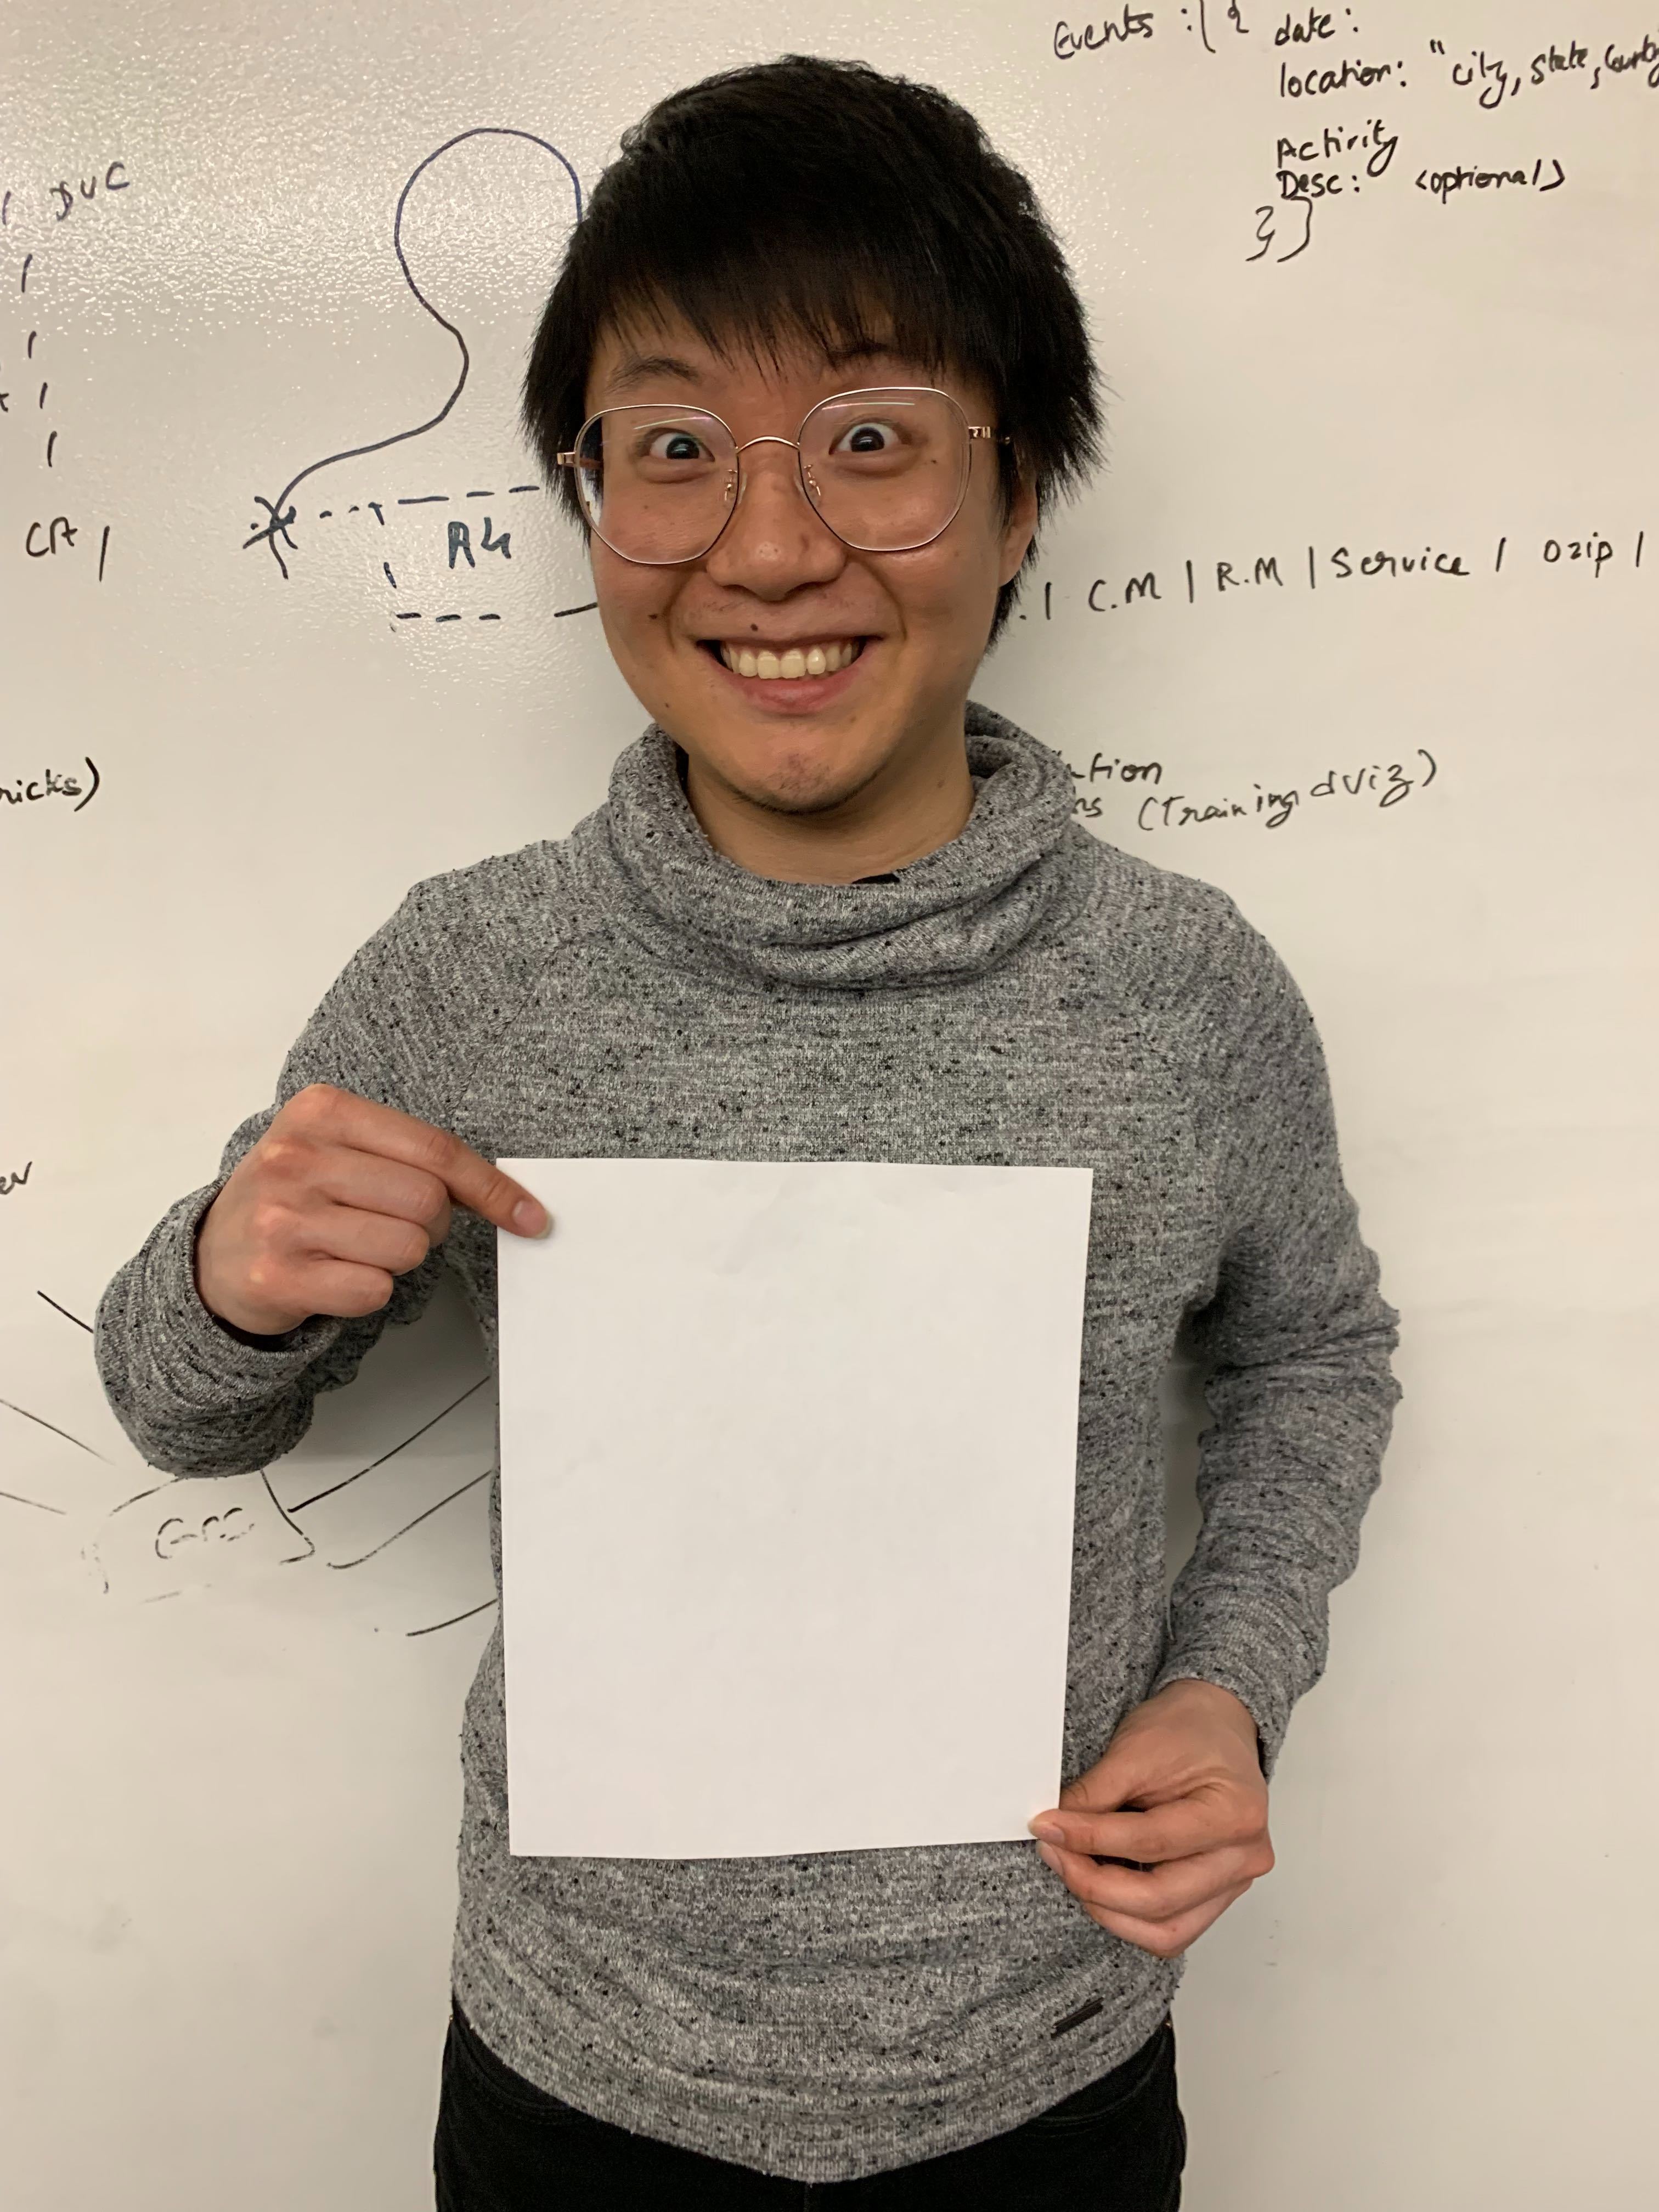 Events :[{ date:
location: "city, state, country
Activity
Desc: <optional>
}]
DVC
CA |
A4
| C.M | R.M | Service | Ozip |
ricks)
ation
ns (Training dViz)